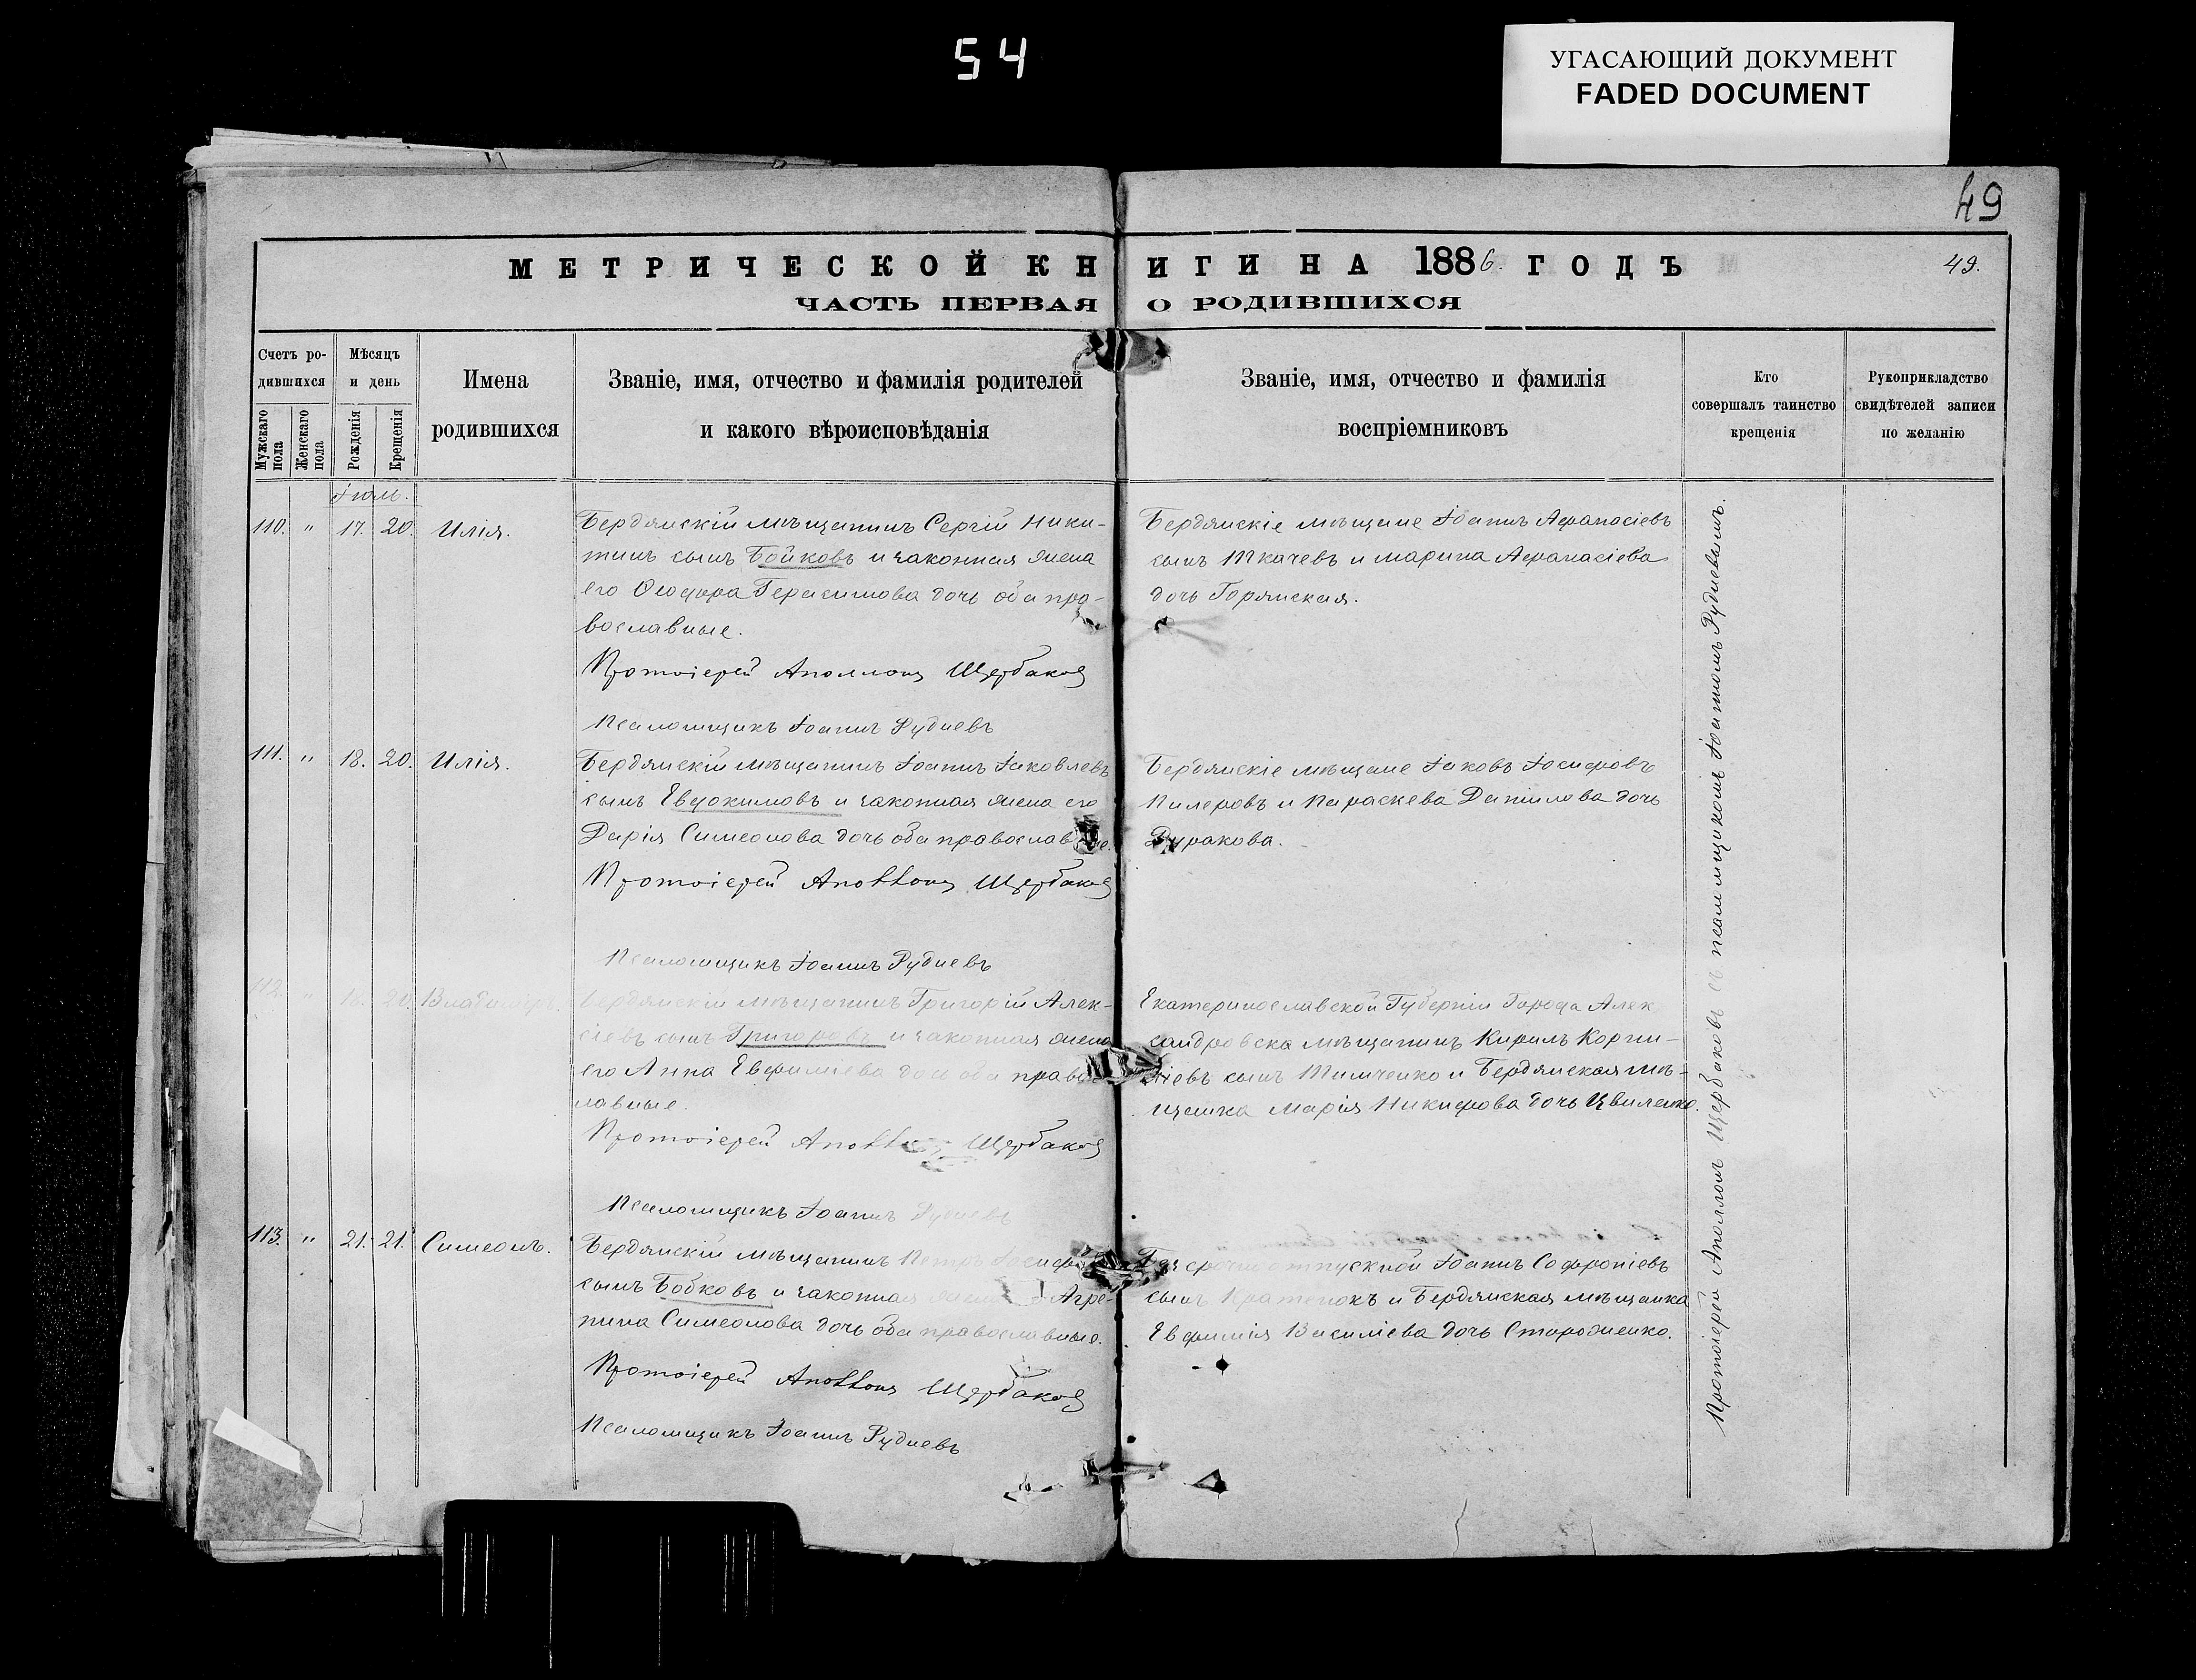 54
УГАСАЮЩИЙ ДОКУМЕНТ
FADED DOCUMENT
49
МЕТРИЧЕСКОЙ КНИГИ НА 1886. ГОДЪ
49.
ЧАСТЬ ПЕРВАЯ О РОДИВШИХСЯ
Счетъ ро-
дившихся
Мужскаго пола
Женскаго пола
Мѣсяцъ
и день
Рожденія
Крещенія
Имена
родившихся
Званіе, имя, отчество и фамилія родителей
и какого вѣроисповѣданія
Званіе, имя, отчество и фамилія
воспріемниковъ
Кто
совершалъ таинство
крещенія
Рукоприкладство
свидѣтелей записи
по желанію
110. " 17. 20. Илія.
Бердянскій мѣщанинъ Сергій Ники-
тинъ сынъ Бойковъ и законная жена
его Ѳеодора Герасимова дочь оба пра-
вославные.
Протоіерей Аполлонъ Щербаковъ
Псаломщикъ Іоаннъ Рудневъ
Бердянскіе мѣщане Іоаннъ Аѳанасіевъ
сынъ Ткачевъ и Марина Аѳанасіева
дочь Горянская.
111. " 18. 20. Илія.
Бердянскій мѣщанинъ Іоаннъ Іаковлевъ
сынъ Евдокимовъ и законная жена его
Дарія Симеонова дочь оба православные.
Протоіерей Аполлонъ Щербаковъ
Псаломщикъ Іоаннъ Рудневъ
Бердянскіе мѣщане Іаковъ Іосифовъ
Пилеровъ и Параскева Данилова дочь
Дуракова.
112. " 20. Владиміръ.
Бердянскій мѣщанинъ Григорій Алек-
сіевъ сынъ Григоровъ и законная жена
его Анна Евфиміева дочь оба правос-
лавные.
Протоіерей Аполлонъ Щербаковъ
Псаломщикъ Іоаннъ Рудневъ
Екатеринославской Губерніи города Алек
сандровска мѣщанинъ Кирилъ Корни-
ліевъ сынъ Тимченко и Бердянская мѣ-
щанка Марія Никифорова дочь Цвиленко.
113. " 21. 21. Симеонъ.
Бердянскій мѣщанинъ Петръ Іосифовъ
сынъ Бобковъ и законная жена Агре-
пина Симеонова дочь оба православные.
Протоіерей Аполлонъ Щербаковъ
Псаломщикъ Іоаннъ Рудневъ
Безсрочно отпускной Іоаннъ Софроніевъ
сынъ и Бердянская мѣщанка
Евфимія Василіева дочь Стороженко.
Протоіерей Аполлонъ Щербаковъ съ псаломщикомъ Іоанномъ Рудневымъ.